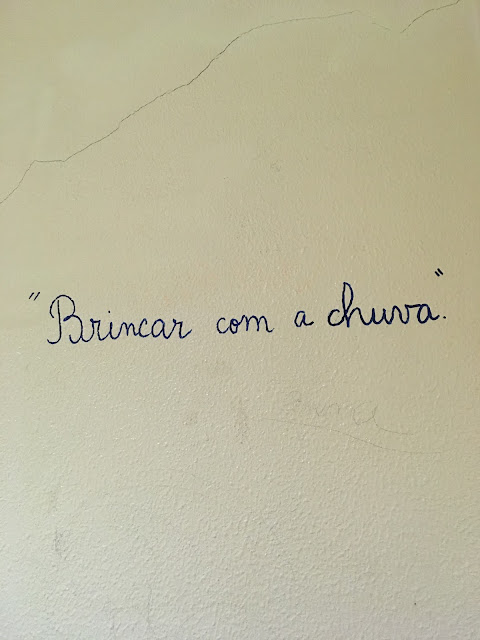 "Brincar com a chuva".